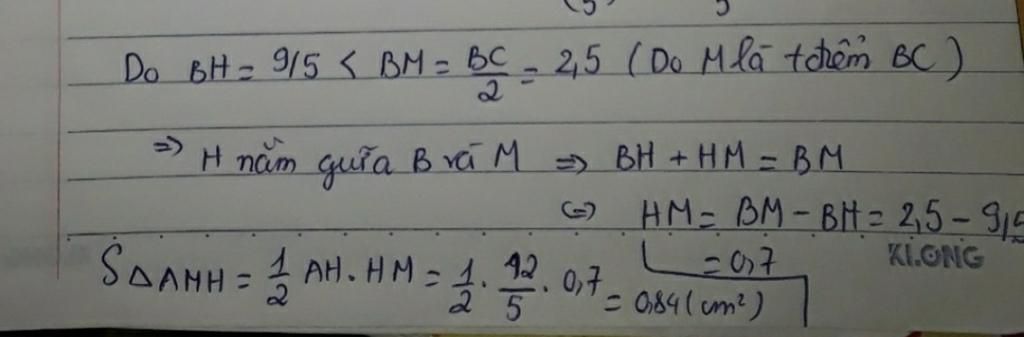 Do BH = 9/5 < BM = BC/2 = 2,5 (Do M là tđiểm BC)
=> H nằm giữa B và M => BH + HM = BM
<=> HM = BM - BH = 2,5 - 9/5
= 0,7
KLONG
S△AMH = 1/2 AH. HM = 1/2 . 12/5 . 0,7 = 0,84 (cm²)